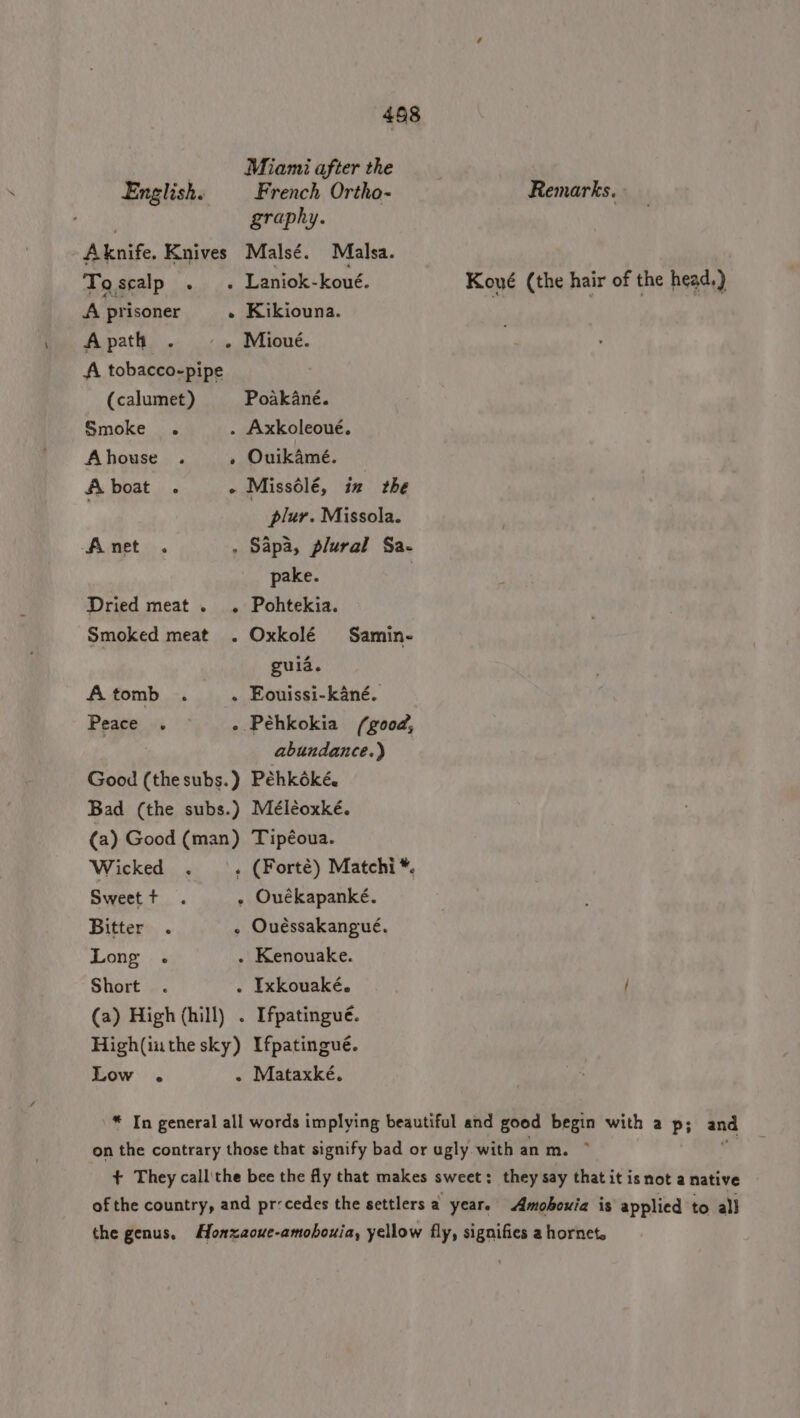 498
Miami after the
English. French Ortho- Remarks.
graphy.
A knife. Knives Malsé. Malsa.
To scalp . . Laniok-koué. Koué (the hair of the head.)
A prisoner . Kikiouna.
A path . . Mioué.
A tobacco-pipe
(calumet) Poàkâné.
Smoke . . Axkoleoué.
A house . . Ouikâmé.
A boat . . Missôlé, in the
plur. Missola.
A net . . Sápà, plural Sa-
pake.
Dried meat . . Pohtekia.
Smoked meat . Oxkolé Samin-
guiá.
A tomb . . Eouissi-kâné.
Peace . . Pèhkokia (good,
abundance.)
Good (the subs.) Pèhkôké.
Bad (the subs.) Méléoxké.
(a) Good (man) Tipéoua.
Wicked . . (Fortè) Matchi *.
Sweet † . . Ouêkapanké.
Bitter . . Ouèssakangué.
Long . . Kenouake.
Short . . Ixkouaké.
(a) High (hill) . Ifpatingué.
High (in the sky) Ifpatingué.
Low . . Mataxké.
* In general all words implying beautiful and good begin with a p; and
on the contrary those that signify bad or ugly with an m.
† They call the bee the fly that makes sweet: they say that it is not a native
of the country, and precedes the settlers a year. Amohouia is applied to all
the genus. Honzaoue-amohouia, yellow fly, signifies a hornet.